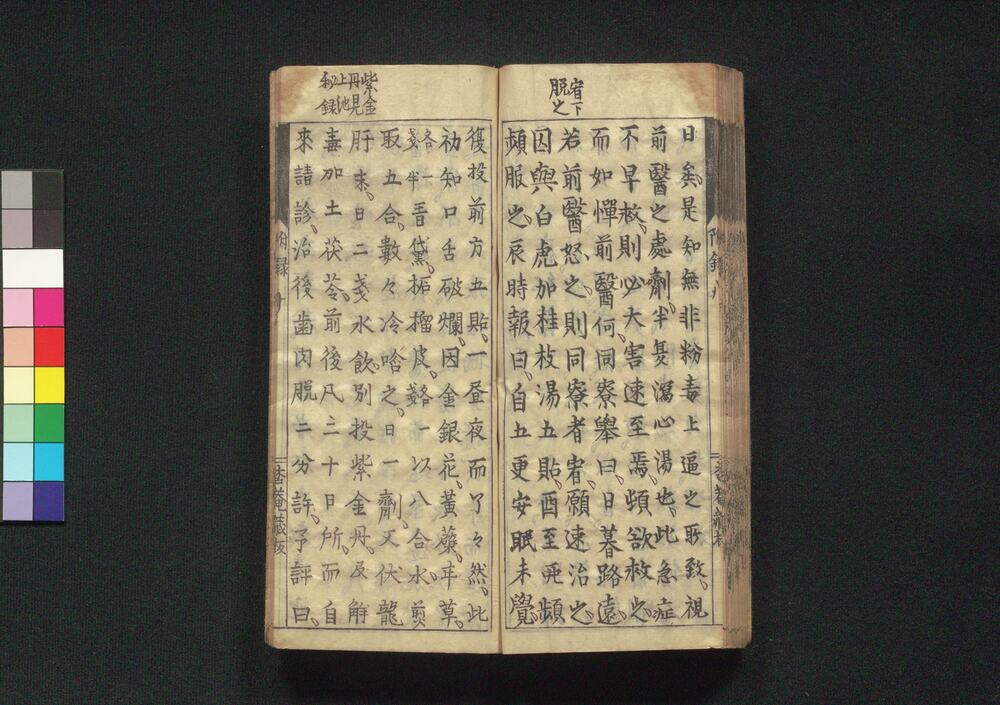 宥下
脱之
日矣是知無非粉毒上逼之所致視
前醫之處劑半夏瀉心湯也此急症
不早救則必大害速至焉頃欲救之
而如憚前醫何同寮擧曰日暮路遠
若前醫怒之則同寮者宥願速治之
因與白虎加桂枝湯五貼酉至再頻
頻服之辰時報曰自五更安眠未覺
附録
紫金
丹見
上池
秘録
復投前方五貼一昼夜而了々然此
初知口舌破爛因金銀花黃蘗甘草
各一戔半青黛榴皮一以八合水煎
取五合數々冷啥之日一劑又伏龍
肝末日二戔水飲別投紫金丹及解
毒加土茯苓前後凡三十日所而自
來請診治後歯肉脱二分許予評曰
附録 十